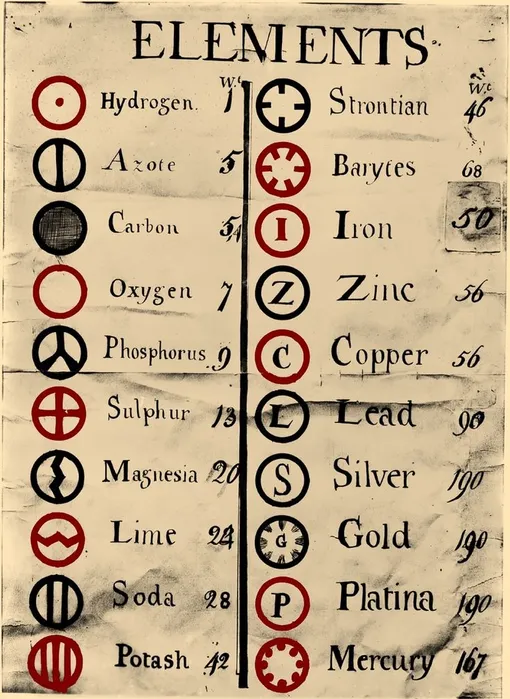 ELEMENTS
Wt Wt
Hydrogen. 1 Strontian 46
Azote 5 Barytes 68
Carbon 5,4 I Iron 50
Oxygen 7 Z Zinc 56
Phosphorus 9 C Copper 56
Sulphur 13 L Lead 90
Magnesia 20 S Silver 190
Lime 24 G Gold 190
Soda 28 P Platina 190
Potash 42 Mercury 167